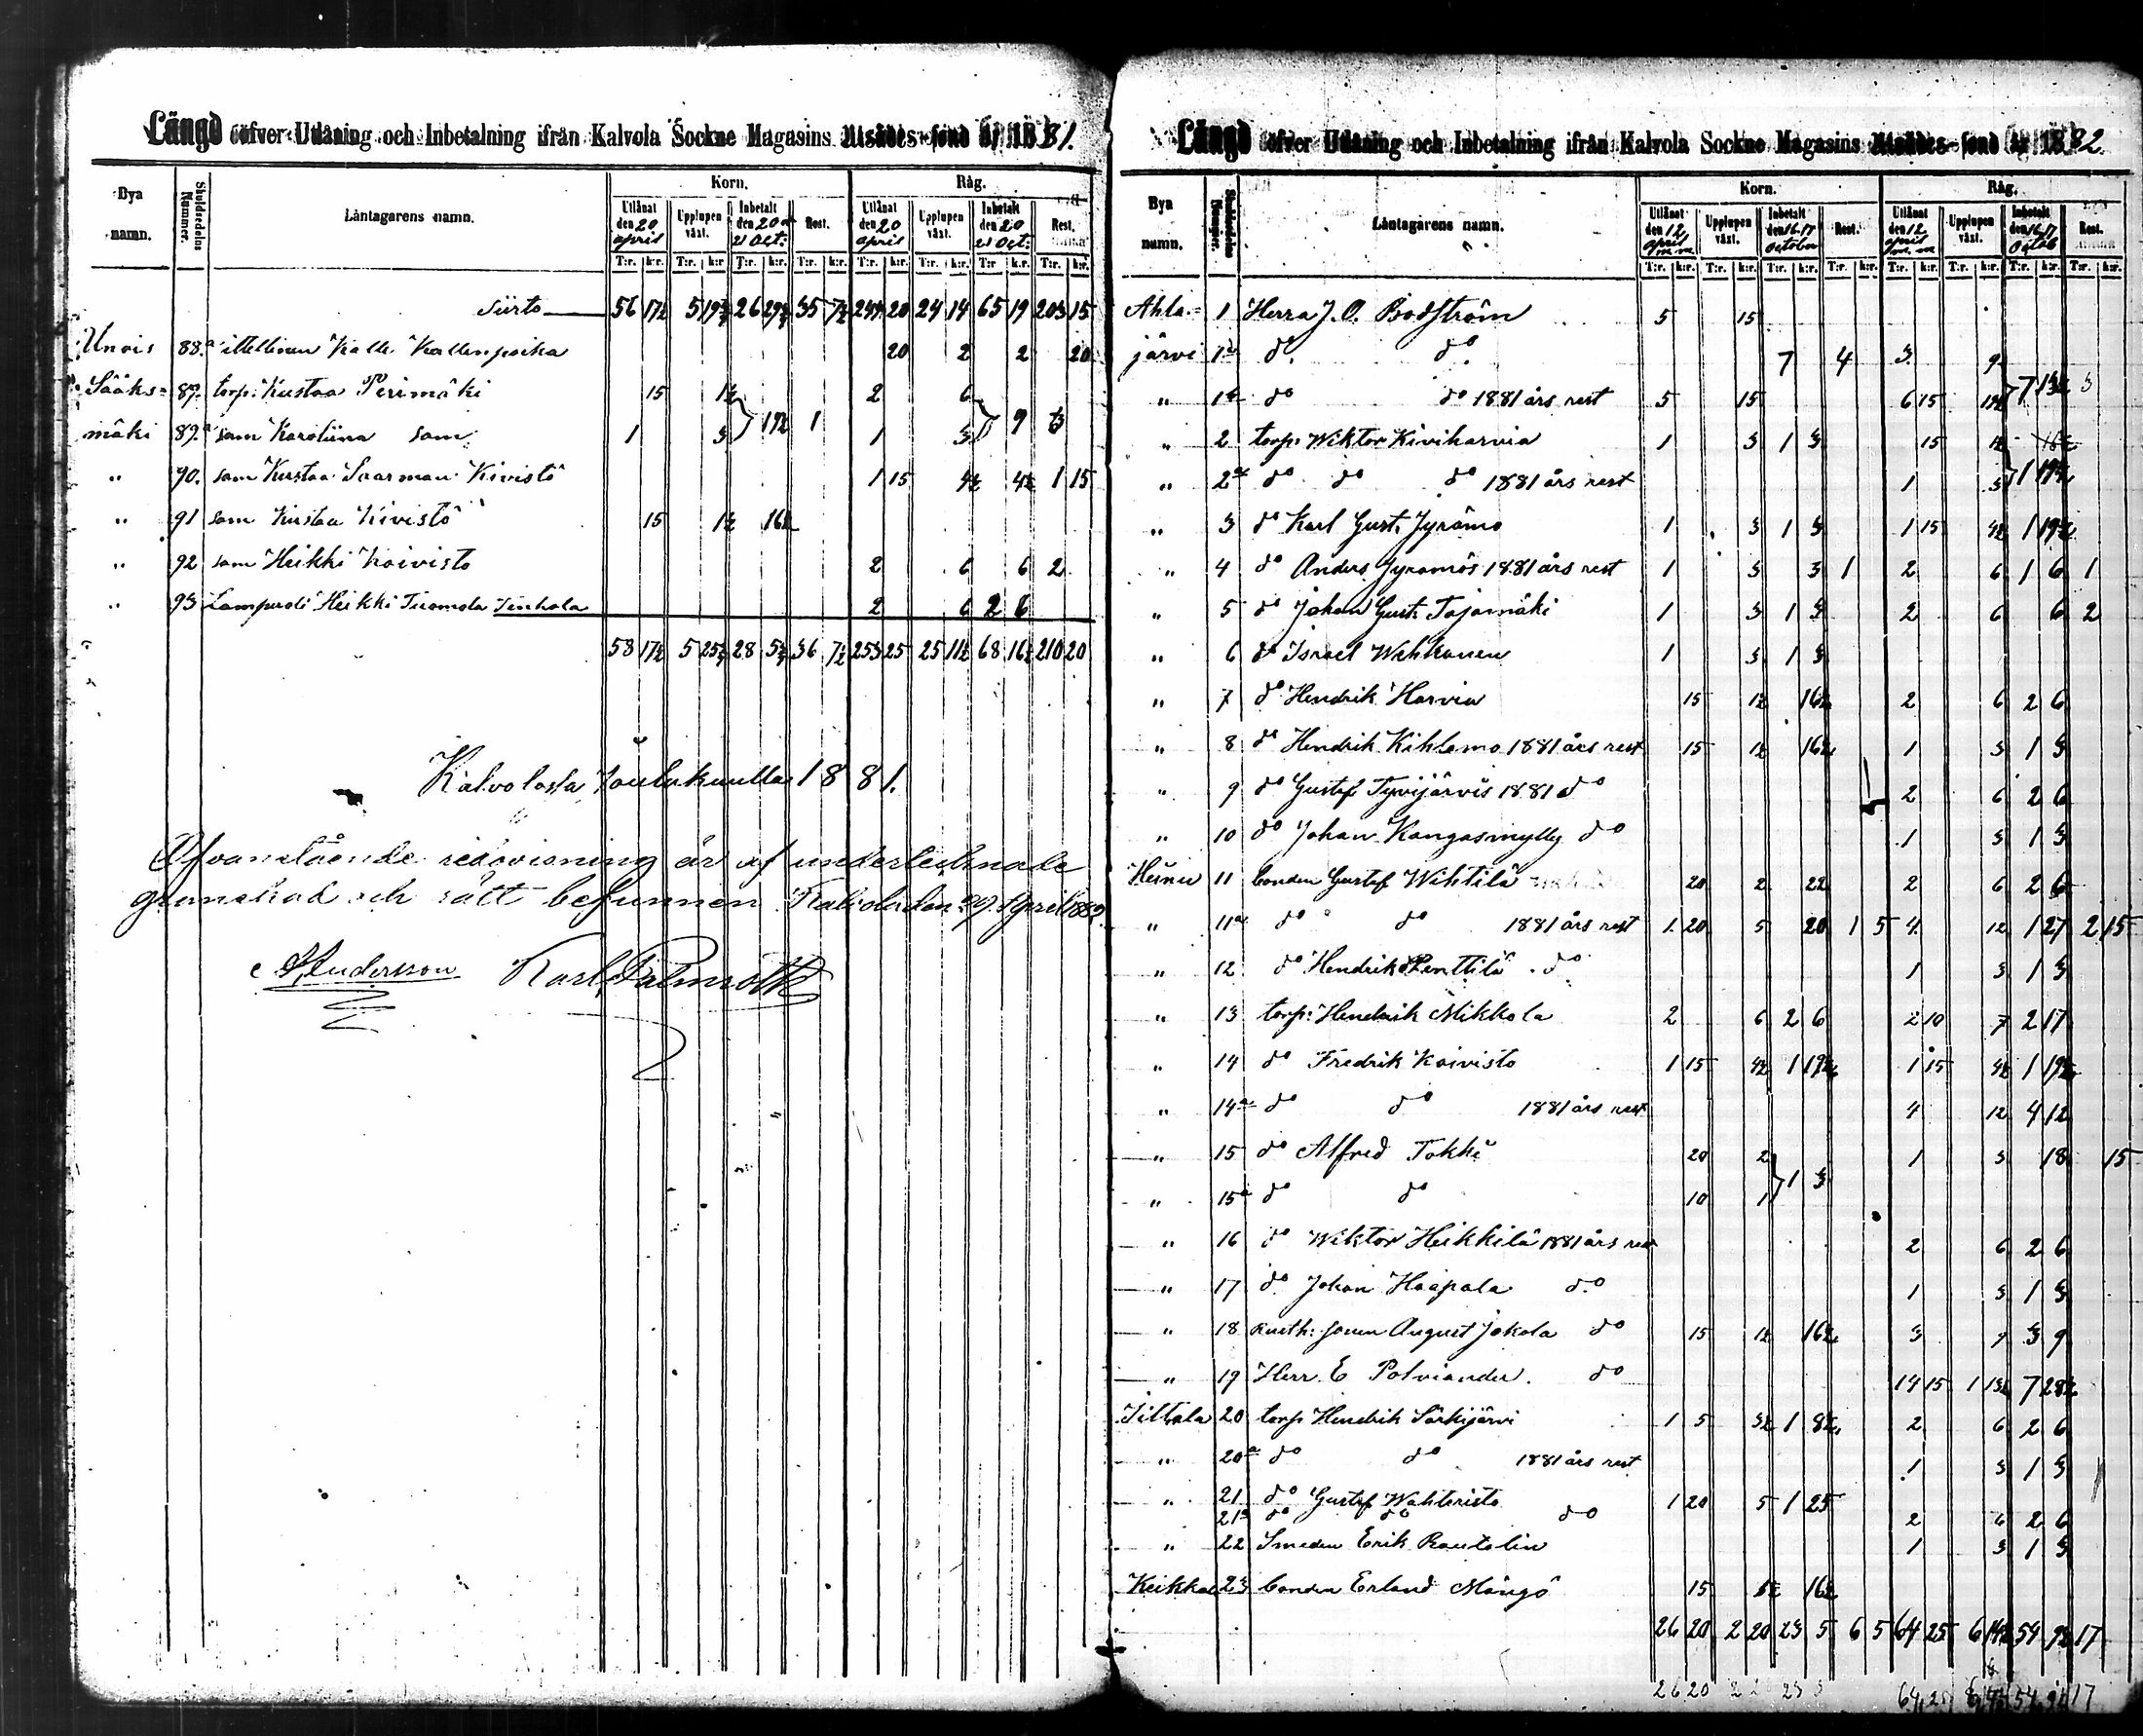 Längd öfver Utlåning och Inbetalning ifrån Kalvola Sockne Magasins Utsädes-fond år 1881.
Korn. Råg.
Bya namn. Skuldsedelns Nummer. Låntagarens namn. Utlånat den 20 april Upplupen växt. Inbetalt den 20 o 21 Oct: Rest. Utlånat den 20 april Upplupen växt. Inbetalt den 20 21 Oct: Rest.
T:r. k:r. T:r. k:r T:r. k:r. T:r. k:r. T:r. k:r. T:r. k:r. T:r k:r. T:r. k:r.
Siirto 56 17½ 5 19¾ 26 29¾ 35 7½ 244 20 24 14 65 19 203 15
Unois 88. Kalle Kallenpoika 20 2 2 20
Sääks= 87. torp: Kustaa Perimäki 15 1½ 2 6
mäki 89. sam Karoliina sam 1 3 } 19½ 1 1 3 } 9 3
" 90. sam Kustaa Saarman Kivistö 1 15 4½ 4½ 1 15
" 91 sam Kustaa Kivistö 15 1½ 16½
" 92 sam Heikki Koivisto 2 6 6 2
" 93 Lampuodi Heikki Tuomola Tenhola 2 6 2 6
58 17½ 5 25¾ 28 5¾ 36 7½ 253 25 25 11½ 68 16½ 210 20
Kalvolasta Joulukuulla 1881.
Ofvanstående redovisning är af undertecknade
granskad och rätt befunnen. Kalvola den 29 April 1882.
Andersson Karl Palmroth
Längd öfver Utlåning och Inbetalning ifrån Kalvola Sockne Magasins Utsädes-fond år 1882
Korn. Råg.
Bya namn. Skuldsedelns Nummer. Låntagarens namn. Utlånat den 12 april Upplupen växt. Inbetalt den 16. 17 October Rest. Utlånat den 12 april Upplupen växt. Inbetalt den 16 17 Octob Rest.
T:r. k:r. T:r. k:r. T:r. k:r. T:r. k:r. T:r. k:r. T:r. k:r. T:r. k:r. T:r. k:r.
Ahla= 1 Herra J. O. Bodström 5 15
järvi 1a do do 7 4 3 9
" 1b do do 1881 års rest 5 15 6 15 19½ } 7 13½ 3
" 2 torp: Wiktor Kiviharvia 1 3 1 3 15 1½
" 2a do do do 1881 års rest 1 3 1 19½
" 3 do Karl Gust. Jyrämö 1 3 1 3 1 15 4½ 1 19½
" 4 do Anders Jyrämös 1881 års rest 1 3 3 1 2 6 1 6 1
" 5 do Johan Gust. Tajamäki 1 3 1 3 2 6 6 2
" 6 do Israel Wehkanen 1 3 1 3
" 7 do Hendrik Harvia 15 1½ 16½ 2 6 2 6
" 8 do Hendrik Kihlamo 1881 års rest 15 1½ 16½ 1 3 1 3
" 9 do Gustaf Tyvijärvis 1881 do 2 6 2 6
" 10 do Johan Kangasmylly do 1 3 1 3
Heinu 11 bonden Gustaf Wihtilä 20 2 22 2 6 2 6
" 11a do do 1881 års rest 1 20 5 20 1 5 4 12 1 27 2 15
" 12 do Hendrik Penttilä do 1 3 1 3
" 13 torp: Hendrik Mikkola 2 6 2 6 2 10 7 2 17
" 14 do Fredrik Koivisto 1 15 4½ 1 19½ 1 15 4½ 1 19½
" 14a do do 1881 års rest 4 12 4 12
" 15 do Alfred Tokki 20 2 1 3 18 15
" 15a do do 10 1 } 1 3
" 16 do Wiktor Heikkilä 1881 års rest 2 6 2 6
" 17 do Johan Haapala do 1 3 1 3
" 18 August Jokola do 15 1½ 16½ 3 9 3 9
" 19 Herr E Polviander. do 14 15 1 13½ 7 28½
Tiltala 20 torp Hendrik Särkijärvi 1 5 3½ 1 8½ 2 6 2 6
" 20a do do 1881 års rest 1 3 1 3
" 21 do Gustaf Wahteristo 1 20 5 1 25
21a do do do 2 6 2 6
" 22 Smeden Erik Rautalin 1 3 1 3
Keikkala 23 bonden Erland Mängö 15 1½ 16½
26 20 2 20 23 5 6 5 64 25 6 14½ 54 9½ 17
26 20 2 2 23 5 64 25 6 54 9½ 17